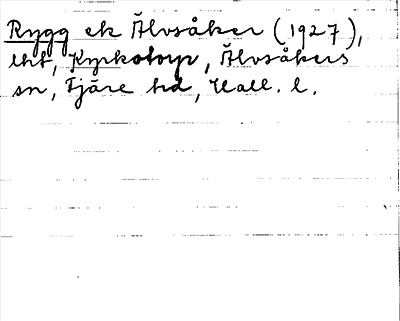 Rygg ek Älvsåker (1927),
lht, Kyrkotorp, Älvsåkers
sn, Fjäre hd, Hall. l.